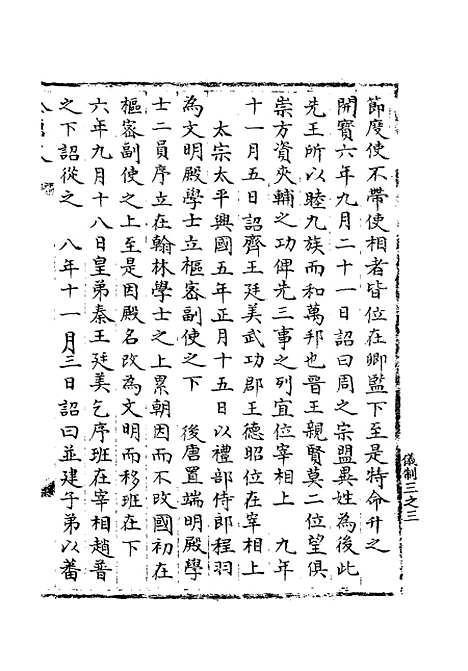 節度使不帶使相者皆位在卿監下至是特命升之
開寶六年九月二十一日詔曰周之宗盟異姓為後此
先王所以睦九族而和萬邦也晉王親賢莫二位望俱
崇方資夾輔之功俾先三事之列宜位宰相上　九年
十一月五日詔齊王廷美武功郡王德昭位在宰相上
太宗太平興國五年正月十五日以禮部侍郎程羽
為文明殿學士立樞密副使之下　後唐置端明殿學
士二員序立在翰林學士之上累朝因而不改國初在
樞密副使之上至是因殿名改為文明而移班在下
六年九月十八日皇弟秦王廷美乞序班在宰相趙普
之下詔從之　八年十一月三日詔曰並建子弟以蕃
儀制三之三